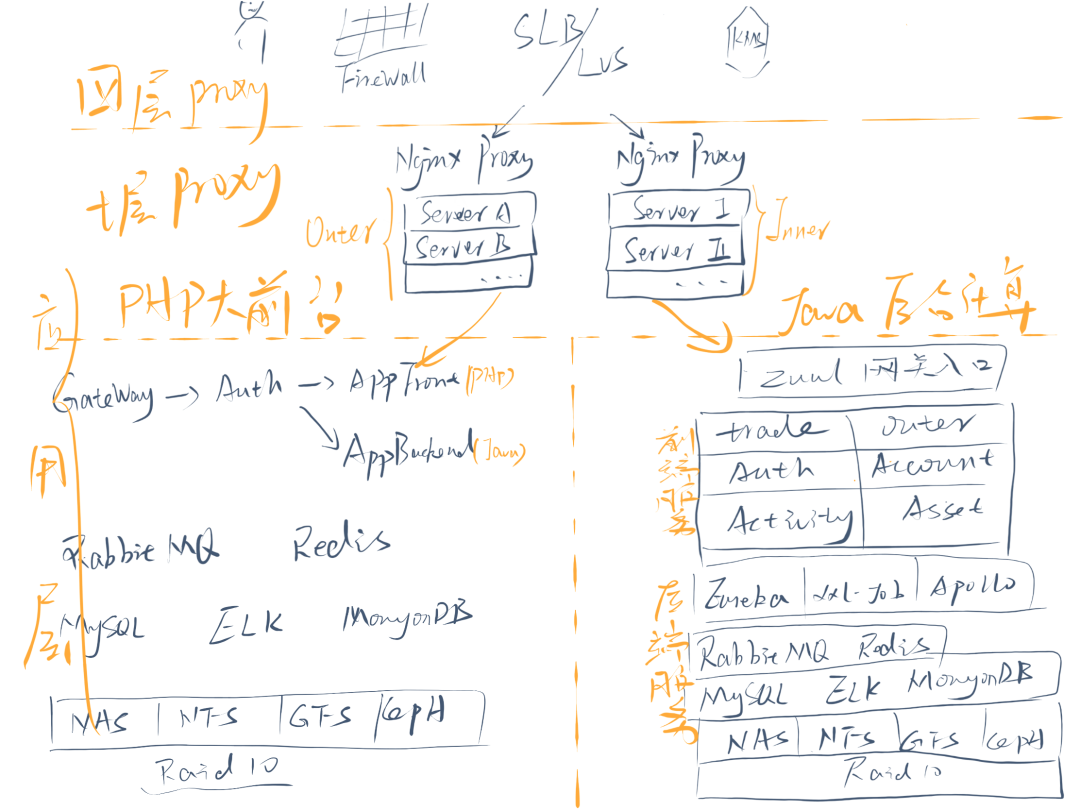 SLB/LVS
KMS
Firewall
四层 proxy
七层 proxy
Nginx Proxy
Nginx Proxy
Outer
Server A
Server B
....
Server I
Server II
...
Inner
应用层
PHP大前台
Java 后台计算
GateWay → Auth → AppFront (PHP)
AppBackend (Java)
RabbitMQ Redis
MySQL ELK MongonDB
NAS NTS GTS CepH
Raid 10
Zuul 网关入口
前端服务
trade outer
Auth Account
Activity Asset
后端服务
Eureka xxl-Job Apollo
RabbitMQ Redis
MySQL ELK MongonDB
NAS NTS GTS CepH
Raid 10